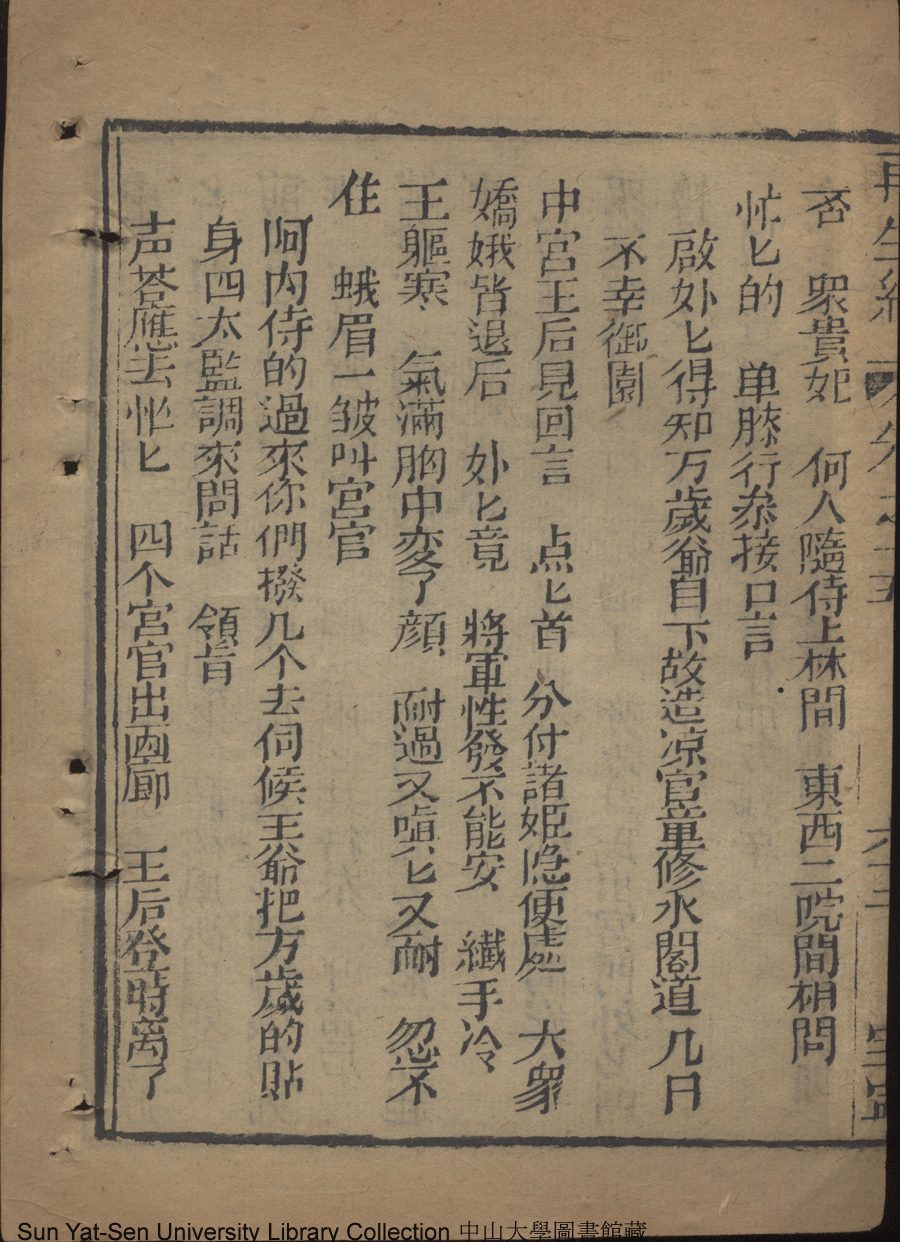 否　衆貴妃　何人隨侍上林間　東西二院間相問
忙匕的　单膝行叅接口言
啟娘匕得知万歲爺自下故造凉官董修水閣道几日
不幸御園
中宮王后見回言　点匕首　分付諸姬隐便處　大衆
嬌娥皆退后　娘匕竟　將軍性發不能安　纖手冷
王軀寒　氣滿胸中变了顔　耐過又嗔匕又耐　忽不
住　蛾眉一皱叫宮官
阿内侍的過來你們撥几个去伺候王爺把万歲的貼
身四太監調來問話　領旨
声荅應去忙匕　四个宮官出画廊　王后登時离了
Sun Yat-Sen University Library Collection 中山大學圖書館藏